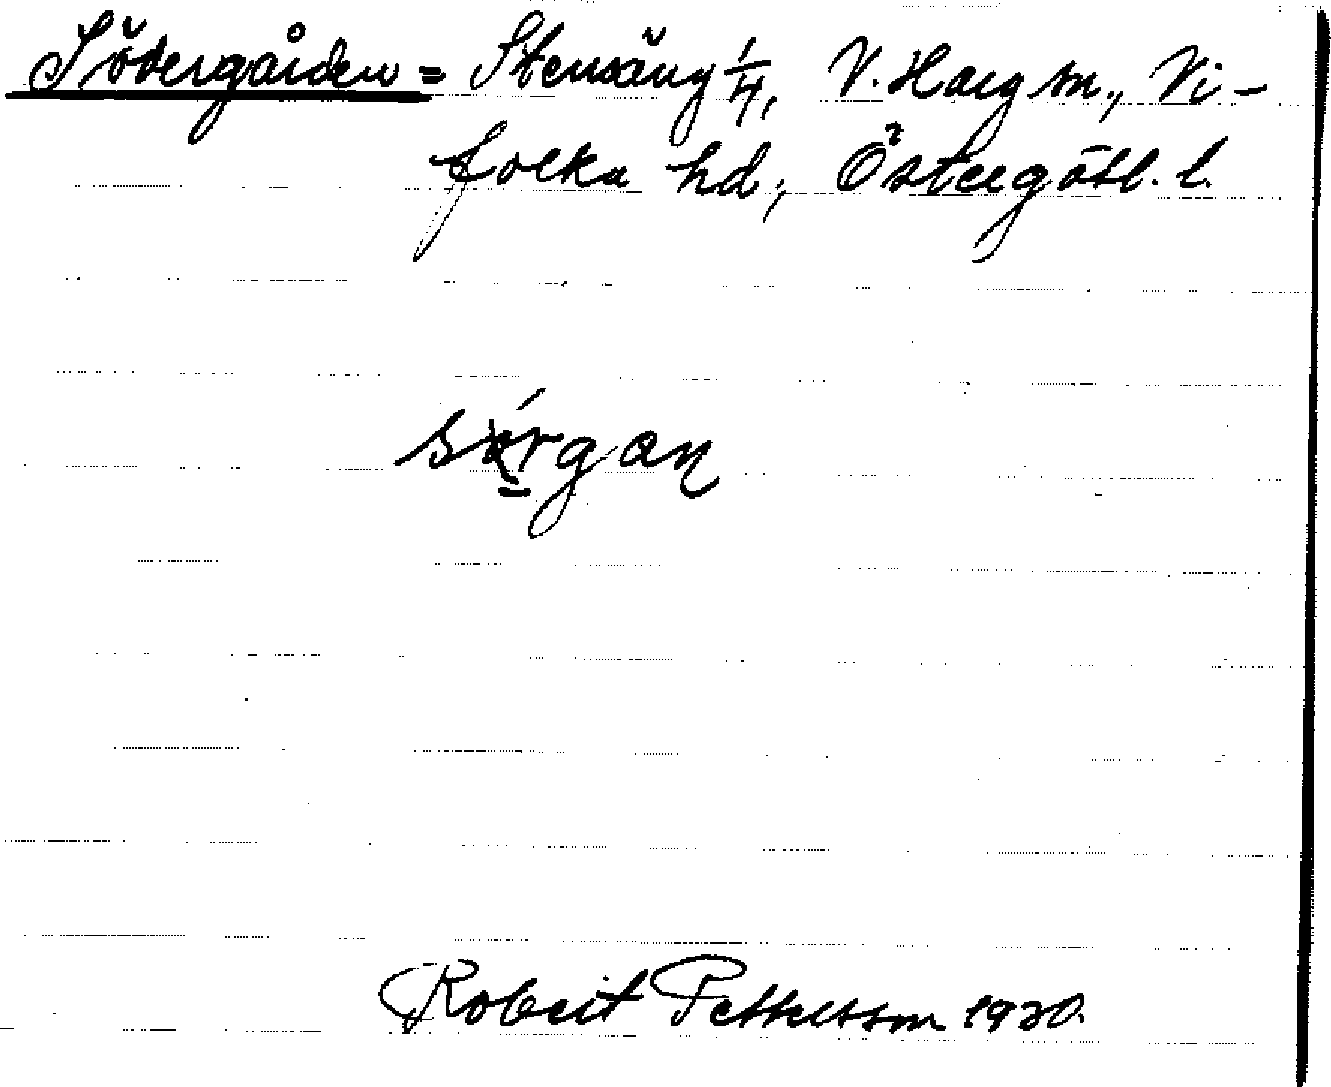 Södergården = Stensäng 1/4, V. Harg sn., Vi-
folka hd, Östergötl. l.
Robert Pettersson 1930.